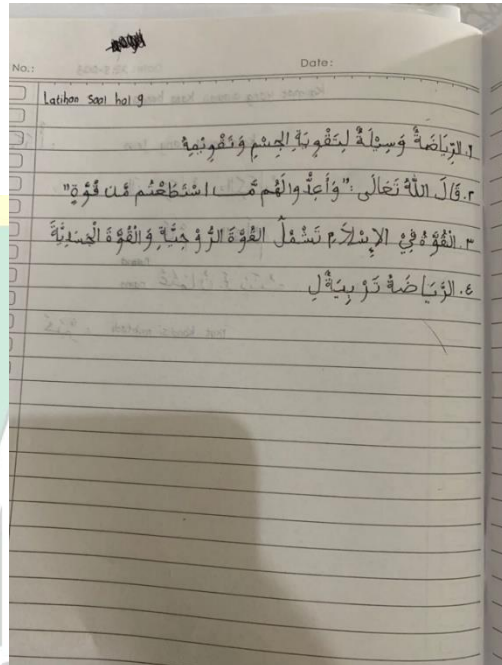 No.:
Date:
Latihan Soal hal 9
١. الرِّيَاضَةُ وَسِيْلَةٌ لِتَقْوِيَةِ الْجِسْمِ وَتَقْوِيْمِهِ
٢. قَالَ اللّٰهُ تَعَالَى : "وَأَعِدُّوا لَهُم مَّا اسْتَطَعْتُم مِّن قُوَّةٍ"
٣. الْقُوَّةُ فِيْ الإِسْلَامِ تَشْمُلُ القُوَّةَ الرُّوْحِيَّةِ وَالْقُوَّةَ الْجَسَدِيَّةَ
٤. الرِّيَاضَةُ تَرْبِيَةٌ لِ